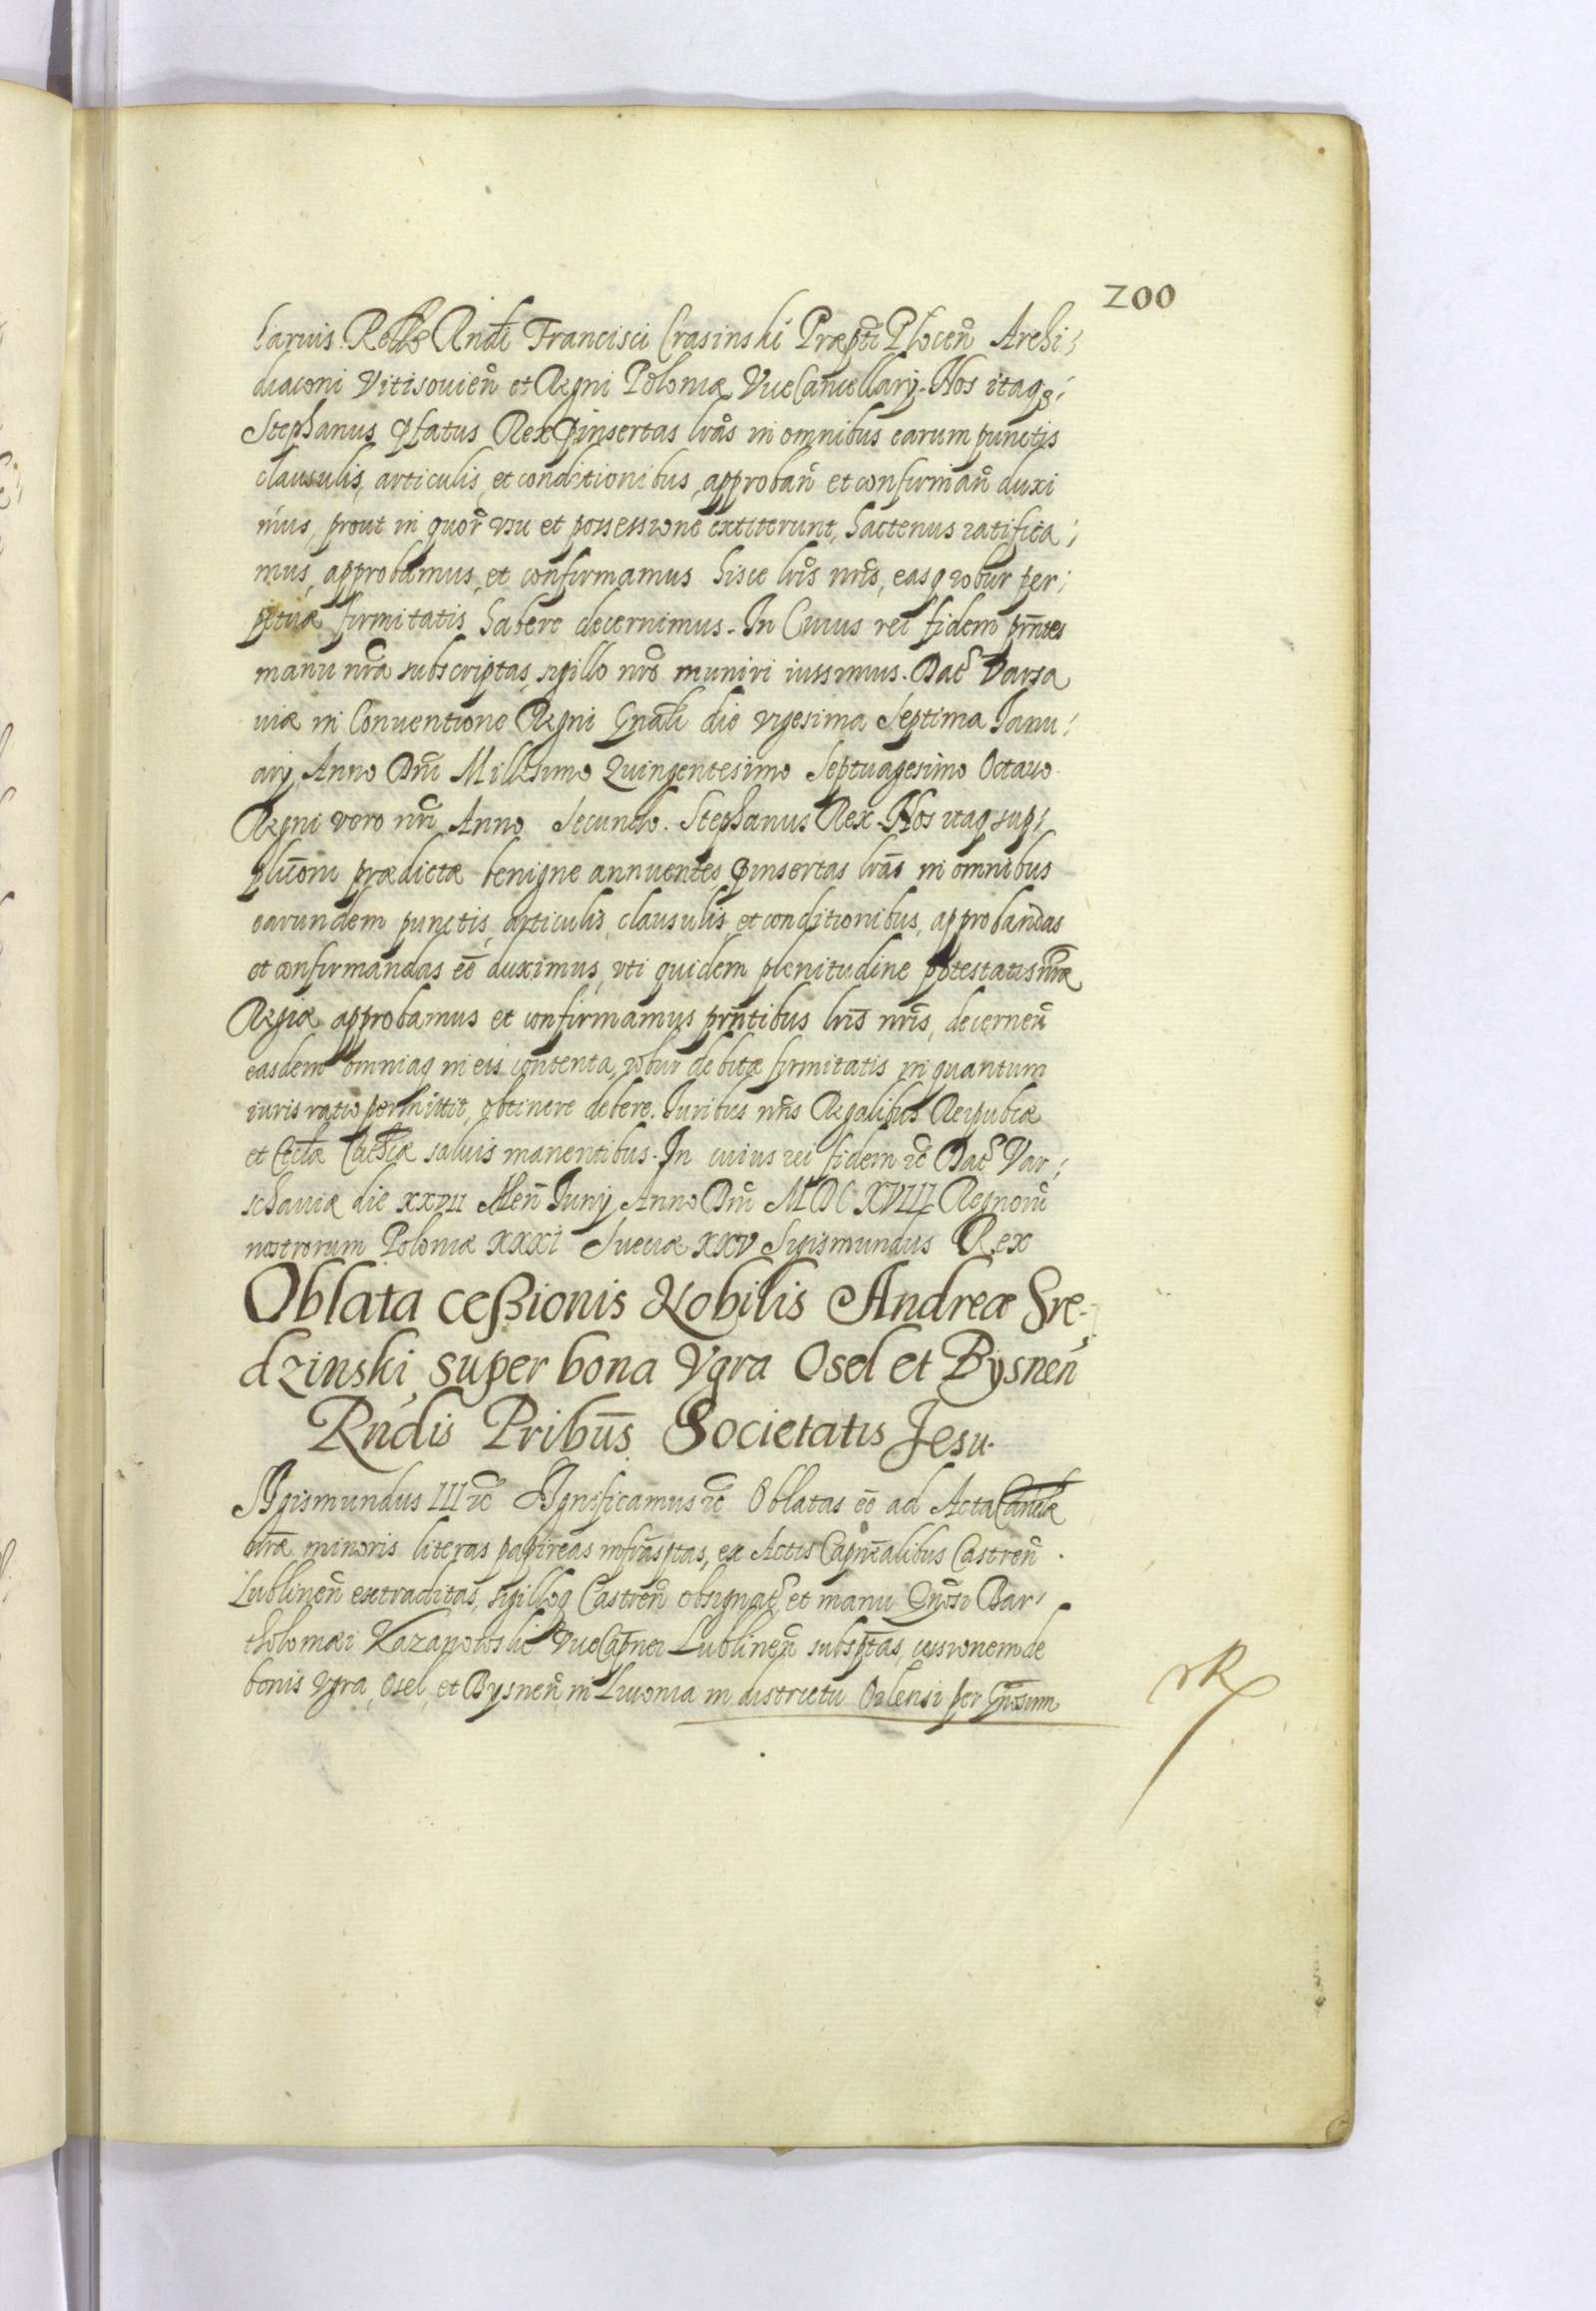 200
haruis. Relle Rndi Francisci Crasinski Præpti Plocen̄ Archi;
diaconi Vitisouien̄ et Regni Poloniæ ViceCancellarÿ. Nos itaq3;
Stephanus pfatus Rex pinsertas lras in omnibus earum punctis
clausulis, articulis, et conditionibus, approban̄ et confirman̄ duxi
mus, prout in quor̄ usu et possessione extiterunt, hactenus ratifica;
mus, approbamus, et confirmamus hisce lris nris, easq robur per;
petuæ firmitatis habere decernimus. In Cuius rei fidem pn̄tes
manu nra subscriptas, sigillo nro muniri iussimus. Dat Varsa
uiæ in Conuentione Regni Gnali die vigesima Septima Janu;
arÿ, Anno Dni Millesimo Quingentesimo Septuagesimo Octauo.
Regni vero nri Anno Secundo. Stephanus Rex. Nos itaq sup;
plicōni prædictæ benigne annuentes, pinsertas lras in omnibus
earundem punctis, articulis, clausulis, et conditionibus, approbandas
et confirmandas ee duximus, vti quidem plenitudine potestatis nræ
Regiæ approbamus et confirmamus prn̄tibus lris nris, decernen̄
easdem omniaq in eis contenta, robur debitæ firmitatis in quantum
iuris ratio permittit, obtinere debere. Iuribus nris Regalibus Reipubcæ
et Eccla Cathcæ saluis manentibus. In cuius rei fidem &c Dat Var;
schauiæ die XXVII Men̄ Junÿ Anno Dni MDCXVIII Regnoru
nostrorum Poloniæ XXXI Sueciæ XXV Sigismundus Rex
Oblata ceßionis Nobilis Andreæ Sre-
dzinski, super bona Vgra Osel et Bysnen̄
Rndis Pribus Societatis Jesu.
Sigismundus III &c Significamus &c Oblatas ee ad Acta Canriæ
nræ minoris literas papireas infrasptas, ex Actis Capnealibus Castren̄.
Lublinen̄ extraditas, sigilloq Castren̄ obsignat, et manu Gnosi Bar,
tholomæi Kazanowski ViceCapnei Lublinen̄ subsptas, cessionem de
bonis Vgra, Osel, et Bysnen̄ in Liuonia in districtu Orlensi per Gnosum